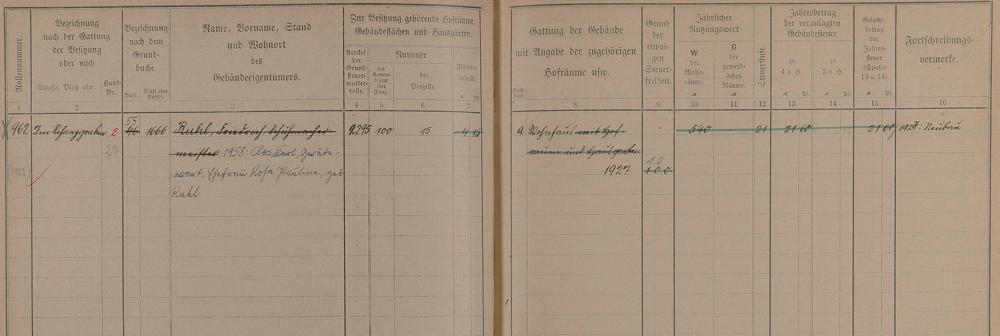 Rollennummer.
Bezeichnung
nach der Gattung
der Besitzung
oder nach
Straße, Platz usw.
Haus-
Nr.
Bezeichnung
nach dem
Grund-
buche.
Band.
Blatt oder
Artikel.
Name, Vorname, Stand
und Wohnort
des
Gebäudeeigentümers.
Zur Besitzung gehörende Hofräume,
Gebäudeflächen und Hausgärten.
Artikel
der
Grund-
steuer-
mutter-
rolle.
Nummer
des
Karten-
blattes
(der
Flur).
der
Parzelle
Flächen-
inhalt.
a
1
2
3
4
5
6
7
962
Im Schanzgraben
2
20
55
46
1666
Ruhl, Friedrich Schuhmacher-
meister, 1958: Klos, Karl, Geräte-
wart, Ehefrau Rosa Pauline, geb
Ruhl
2295
100
15
4 15
Gattung der Gebäude
mit Angabe der zugehörigen
Hofräume usw.
Grund
der
etwai-
gen
Steuer-
freiheit.
Jährlicher
Nutzungswert
W
der
Wohn-
räume.
G
der
gewerb-
lichen
Räume.
Steuerstufe.
Jahresbetrag
der veranlagten
Gebäudesteuer
zu
4 v. H.
zu
2 v. H.
Gesamt-
betrag
der
Jahres-
steuer
(Spalte
13 u. 14)
Fortschreibungs-
vermerke.
8
9
10
11
12
13
14
15
16
a Wohnhaus mit Hof-
raum und Hausgarten
1927
10
100
540
21
21 60
21 60
1927: Neubau